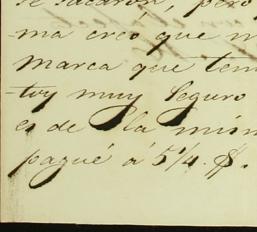 se sacaron, pero
ma creó que n
marca que ten
toy muy Seguro
es de la mism
pagué á 5¼. $.